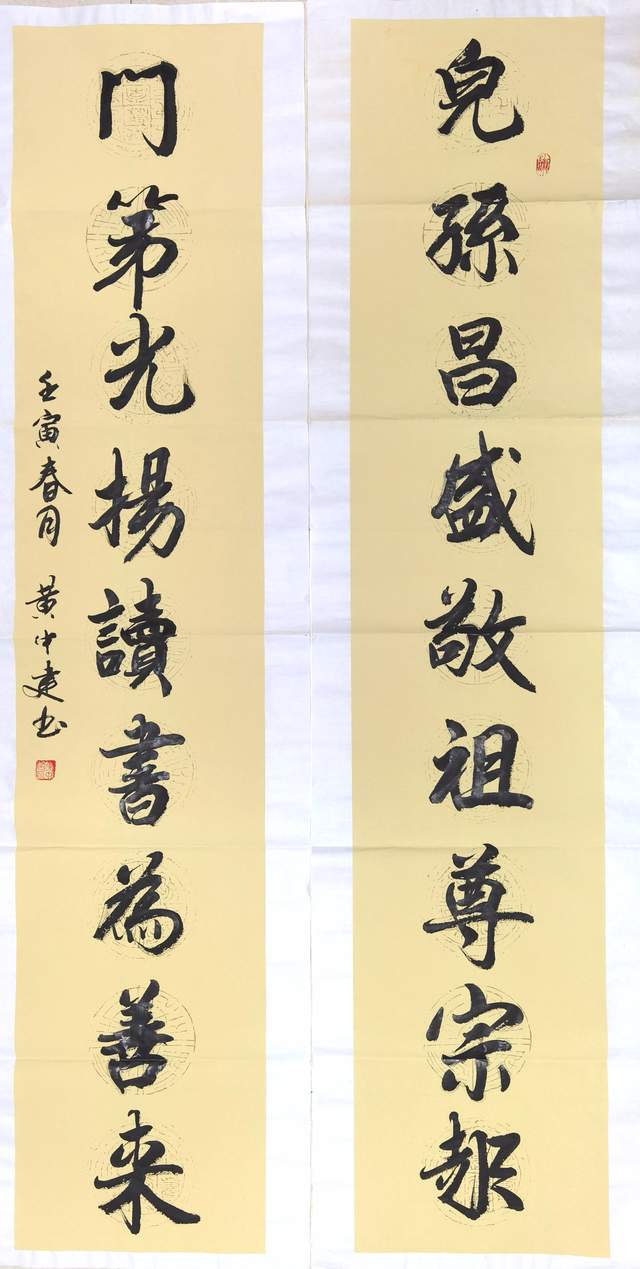 兒孫昌盛敬祖尊宗起
門第光揚讀書為善来
壬寅春月 黄中建书